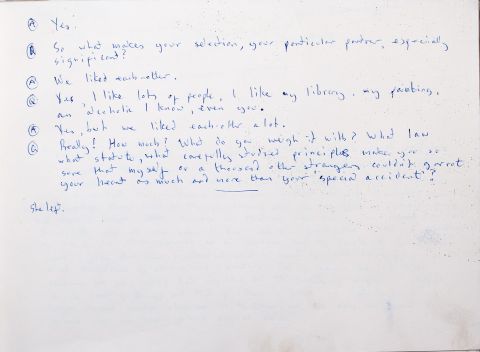 Ⓐ Yes.
Ⓠ So what makes your selection, your particular partner, especially
significant?
Ⓐ We liked each-other.
Ⓠ Yes, I like lots of people, I like my library, my painting,
an alcoholic I know, even you.
Ⓐ Yes, but we liked each-other a lot.
Ⓠ Really! How much? What do you weigh it with? What law
what statute, what carefully studied principles make you so
sure that myself or a thousand other strangers couldn't
your heart as much and more than your 'special accident'?
She left.